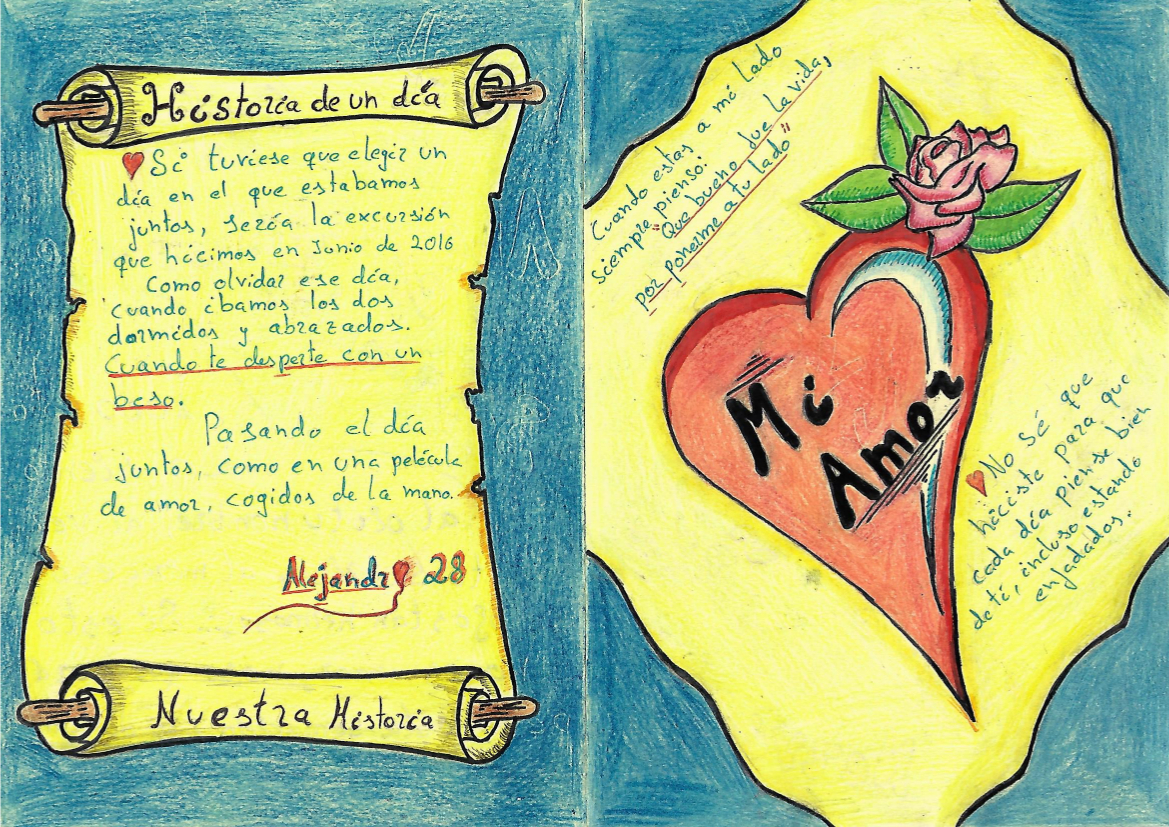 Historia de un día
Si tuviese que elegir un
día en el que estabamos
juntos, sería la excursión
que hicimos en Junio de 2016
Como olvidar ese día,
cuando ibamos los dos
dormidos y abrazados.
Cuando te desperte con un
beso.
Pasando el día
juntos, como en una película
de amor, cogidos de la mano.
Alejandro 28
Nuestra Historia
Cuando estas a mi lado
siempre pienso:
"Que bueno fue la vida,
por ponerme a tu lado"
Mi
Amor
No Sé que
hiciste para que
cada día piense bien
de ti, incluso estando
enfadados.